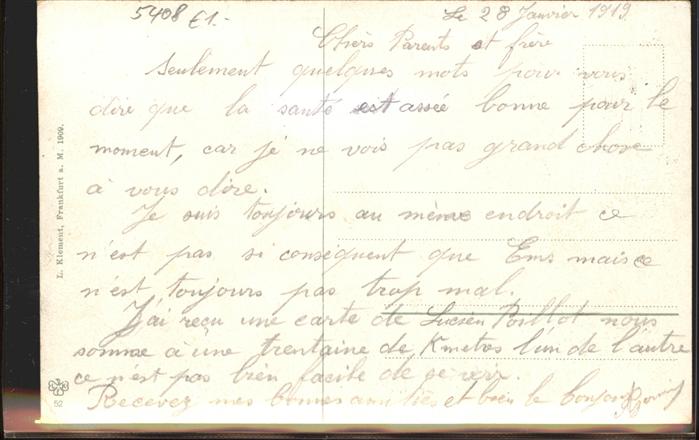 5408 £1.-
Le 28 Janvier 1919
Chèrs Parents et frère
Seulement quelques mots pour vous
dire que la santé est assée bonne pour le
moment, car je ne vois pas grand chose
à vous dire.
Je suis toujours au même endroit ce
n'est pas si conséquent que Ems mais ce
n'est toujours pas trop mal.
J'ai reçu une carte de Lucien Poillot nous
somme à une trentaine de Kmètres l'un de l'autre
ce n'est pas bien facile de se voir.
Recevez mes bonnes amitiés et bien le bonjour
L. Klement, Frankfurt a. M. 1909.
52